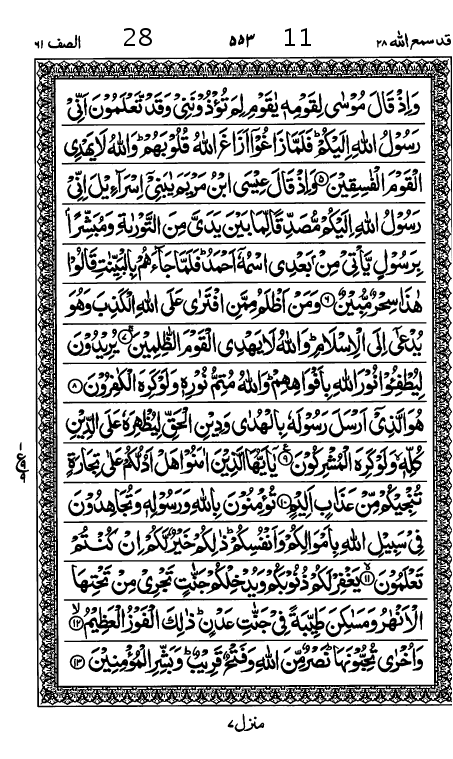 قد سمع الله ٢٨ 11 ٥٥٣ 28 الصف ٦١
وَاِذْ قَالَ مُوْسٰى لِقَوْمِهٖ يٰقَوْمِ لِمَ تُؤْذُوْنَنِيْ وَقَدْ تَّعْلَمُوْنَ اَنِّيْ
رَسُوْلُ اللّٰهِ اِلَيْكُمْ ؕ فَلَمَّا زَاغُوْٓا اَزَاغَ اللّٰهُ قُلُوْبَهُمْ ؕ وَاللّٰهُ لَا يَهْدِي
الْقَوْمَ الْفٰسِقِيْنَ ۝٥ وَاِذْ قَالَ عِيْسَى ابْنُ مَرْيَمَ يٰبَنِيْٓ اِسْرَآءِيْلَ اِنِّيْ
رَسُوْلُ اللّٰهِ اِلَيْكُمْ مُّصَدِّقًا لِّمَا بَيْنَ يَدَيَّ مِنَ التَّوْرٰىةِ وَمُبَشِّرًۢا
بِرَسُوْلٍ يَّاْتِيْ مِنْۢ بَعْدِي اسْمُهٗٓ اَحْمَدُ ؕ فَلَمَّا جَآءَهُمْ بِالْبَيِّنٰتِ قَالُوْا
هٰذَا سِحْرٌ مُّبِيْنٌ ۝٦ وَمَنْ اَظْلَمُ مِمَّنِ افْتَرٰى عَلَى اللّٰهِ الْكَذِبَ وَهُوَ
يُدْعٰٓى اِلَى الْاِسْلَامِ ؕ وَاللّٰهُ لَا يَهْدِي الْقَوْمَ الظّٰلِمِيْنَ ۝٧ يُرِيْدُوْنَ
لِيُطْفِـُٔوْا نُوْرَ اللّٰهِ بِاَفْوَاهِهِمْ ؕ وَاللّٰهُ مُتِمُّ نُوْرِهٖ وَلَوْ كَرِهَ الْكٰفِرُوْنَ ۝٨
هُوَ الَّذِيْٓ اَرْسَلَ رَسُوْلَهٗ بِالْهُدٰى وَدِيْنِ الْحَقِّ لِيُظْهِرَهٗ عَلَى الدِّيْنِ
كُلِّهٖ ۙ وَلَوْ كَرِهَ الْمُشْرِكُوْنَ ۝٩ يٰٓاَيُّهَا الَّذِيْنَ اٰمَنُوْا هَلْ اَدُلُّكُمْ عَلٰى تِجَارَةٍ
تُنْجِيْكُمْ مِّنْ عَذَابٍ اَلِيْمٍ ۝١٠ تُؤْمِنُوْنَ بِاللّٰهِ وَرَسُوْلِهٖ وَتُجَاهِدُوْنَ
فِيْ سَبِيْلِ اللّٰهِ بِاَمْوَالِكُمْ وَاَنْفُسِكُمْ ؕ ذٰلِكُمْ خَيْرٌ لَّكُمْ اِنْ كُنْتُمْ
تَعْلَمُوْنَ ۝١١ يَغْفِرْ لَكُمْ ذُنُوْبَكُمْ وَيُدْخِلْكُمْ جَنّٰتٍ تَجْرِيْ مِنْ تَحْتِهَا
الْاَنْهٰرُ وَمَسٰكِنَ طَيِّبَةً فِيْ جَنّٰتِ عَدْنٍ ؕ ذٰلِكَ الْفَوْزُ الْعَظِيْمُ ۝١٢
وَاُخْرٰى تُحِبُّوْنَهَا ؕ نَصْرٌ مِّنَ اللّٰهِ وَفَتْحٌ قَرِيْبٌ ؕ وَبَشِّرِ الْمُؤْمِنِيْنَ ۝١٣
منزل ٧